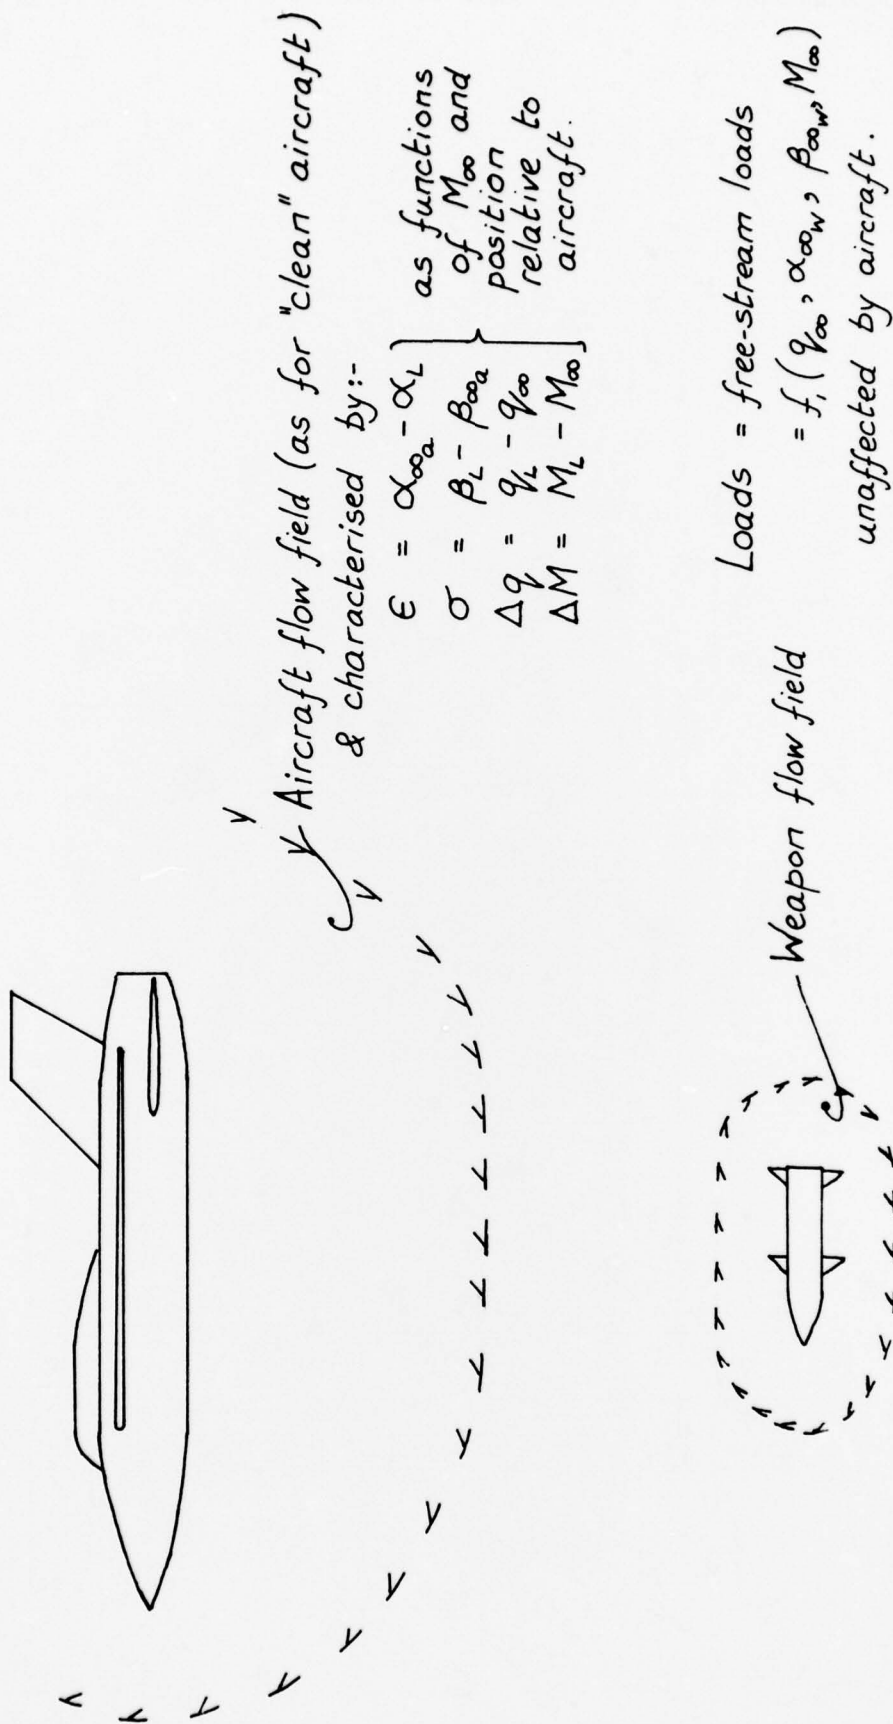 Aircraft flow field (as for "clean" aircraft)
& characterised by:-
ϵ = α∞a - αL
σ = βL - β∞a
Δq = qL - q∞
ΔM = ML - M∞
as functions
of M∞ and
position
relative to
aircraft.
Weapon flow field
Loads = free-stream loads
= f₁ (q∞, α∞w, β∞w, M∞)
unaffected by aircraft.